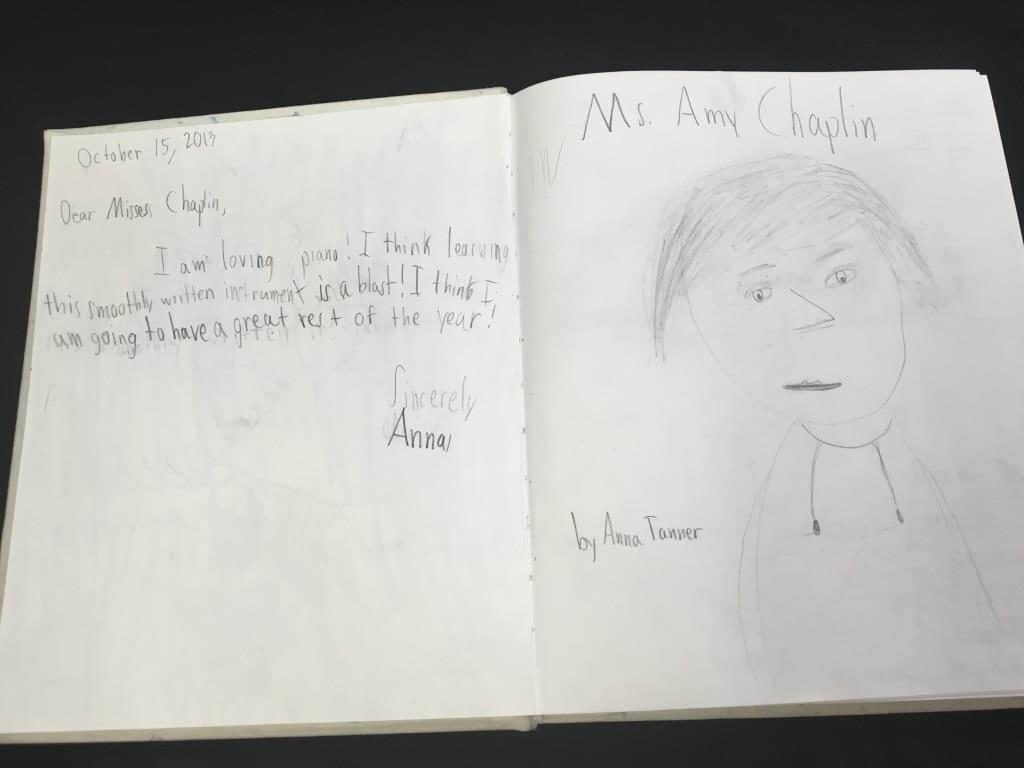 October 15, 2013
Dear Misses Chaplin,
I am loving piano! I think learning
this smoothly written instrument is a blast! I think I
am going to have a great rest of the year!
Sincerely
Anna
Ms. Amy Chaplin
by Anna Tanner